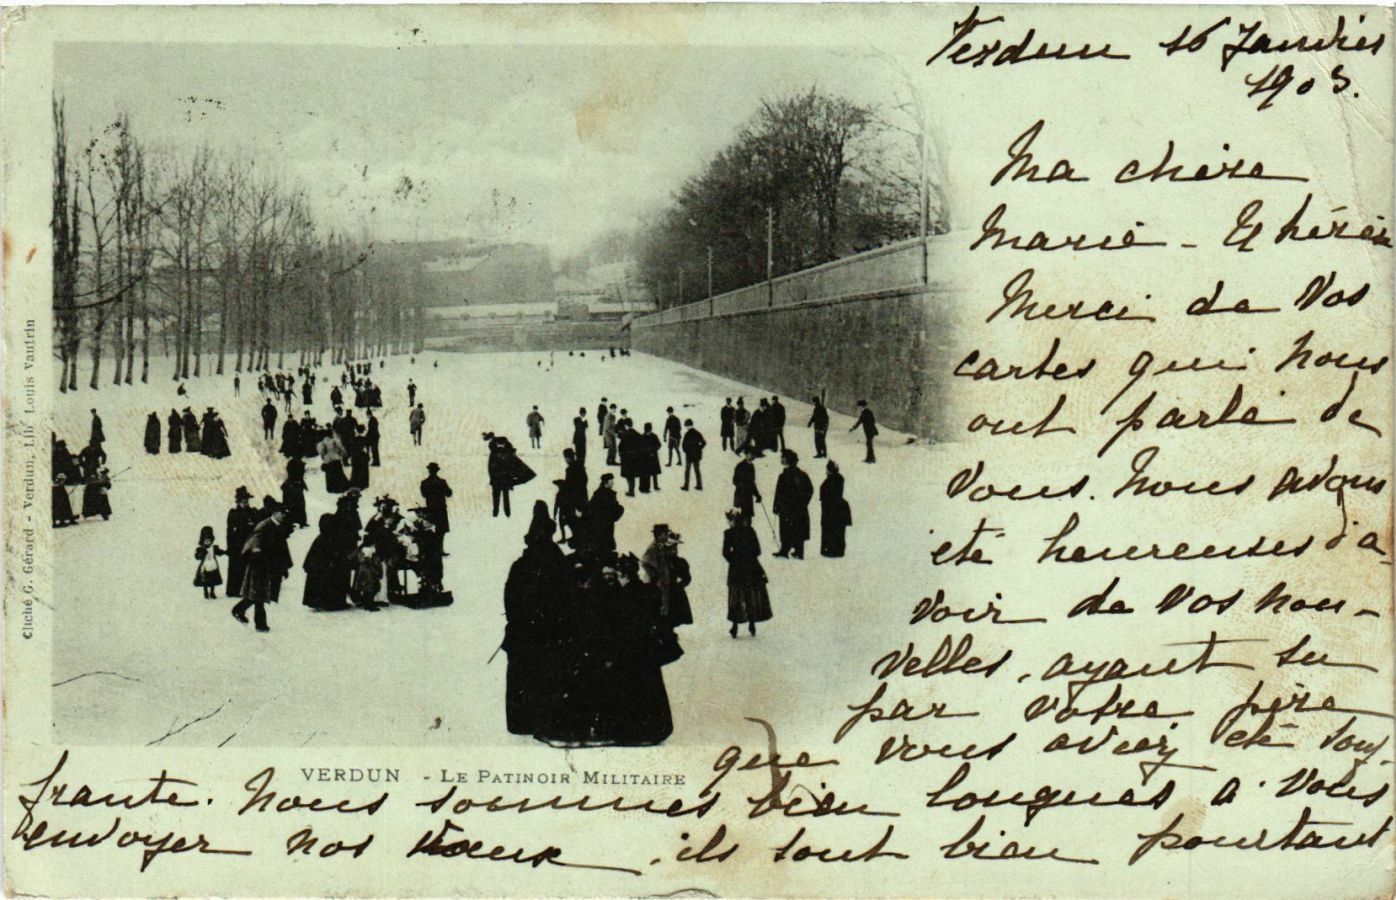 Verdun 16 Janvier
1903.
Ma chère
Marie-Thérèse
Merci de vos
cartes qui nous
ont parlé de
vous. Nous avons
été heureuses d'a-
voir de vos nou-
velles, ayant su
par votre père
que vous aviez été souf-
frante. Nous sommes bien longues à vous
envoyer nos vœux, ils sont bien pourtant
VERDUN - LE PATINOIR MILITAIRE
Cliché G. Gérard - Verdun, Lib. Louis Vautrin